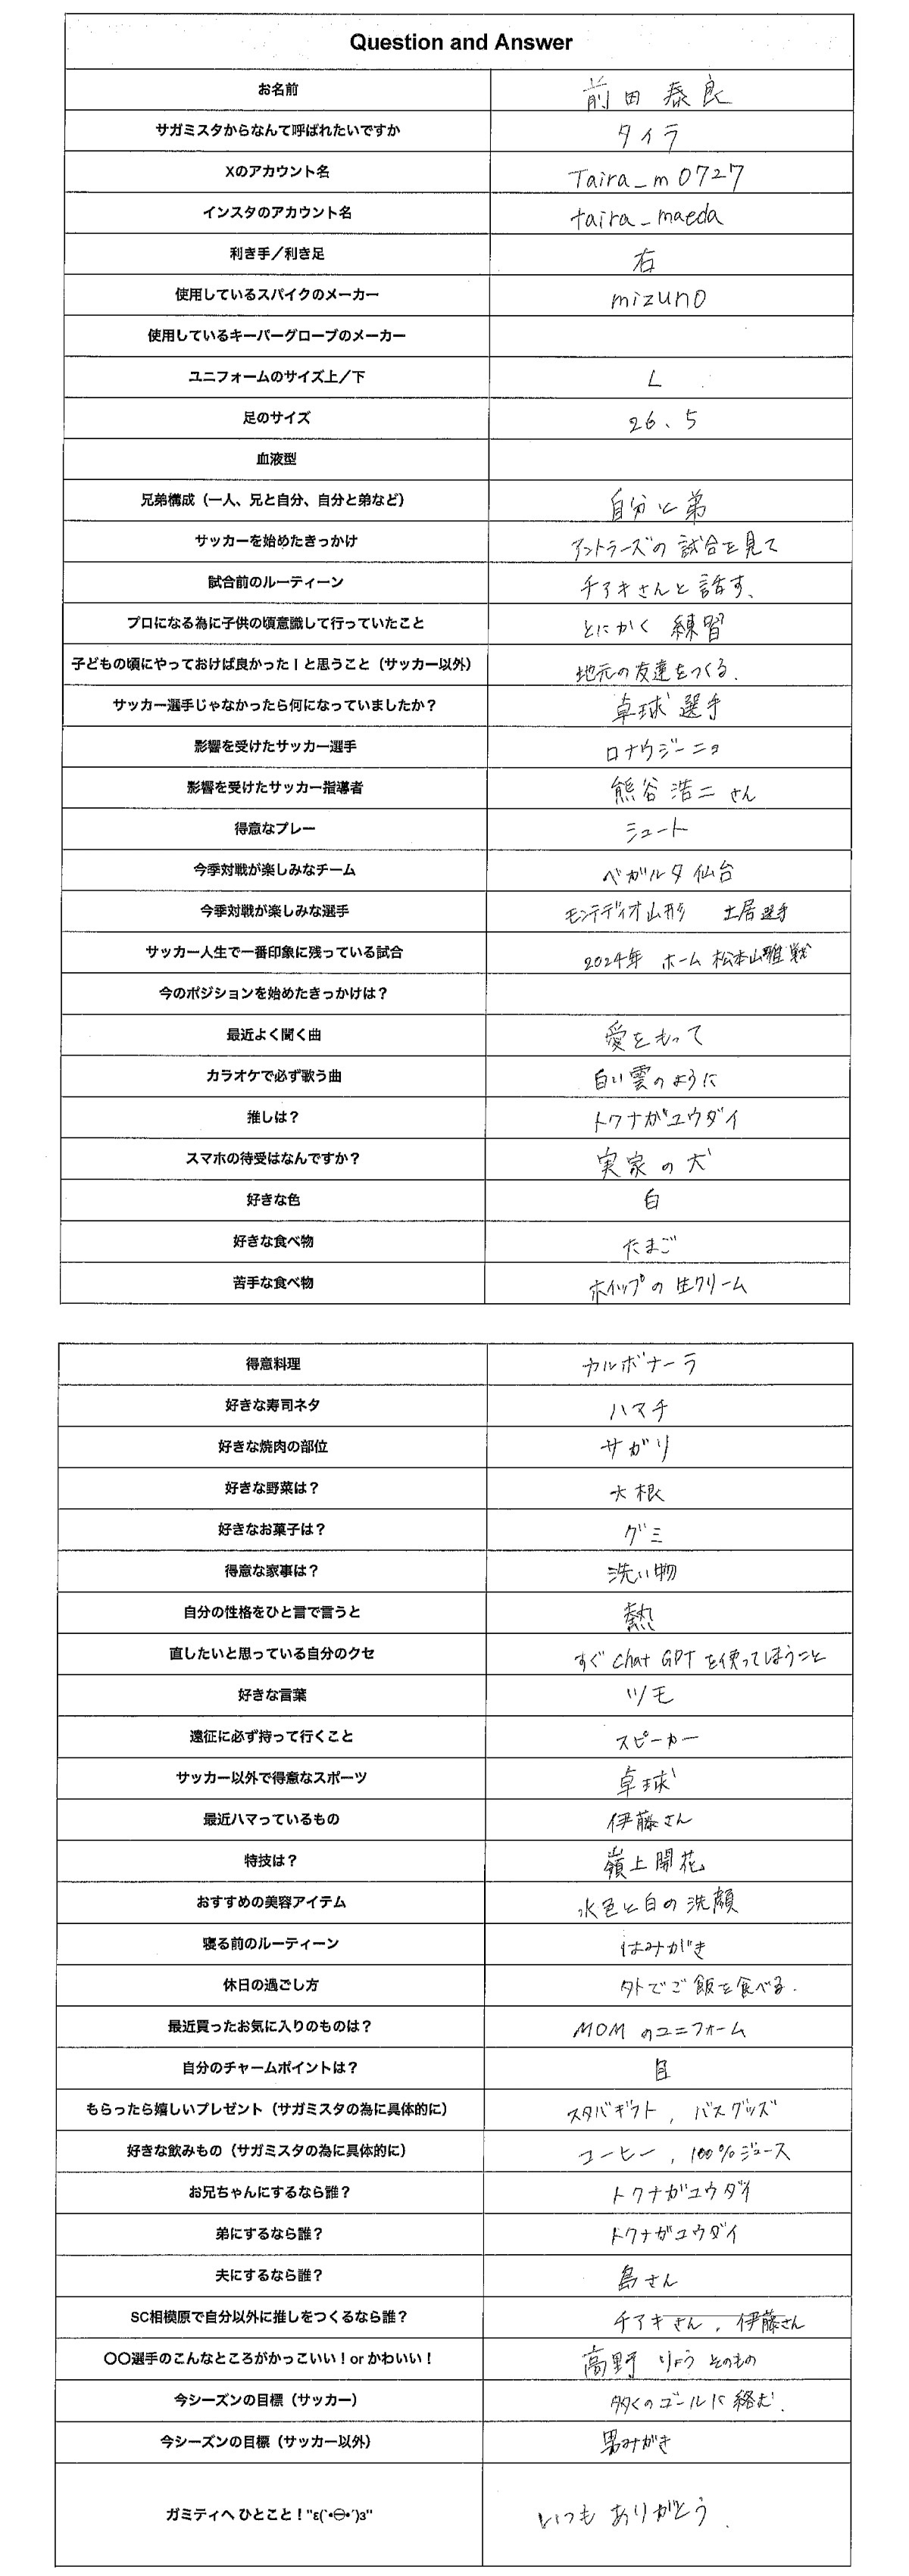 Question and Answer
お名前 前田 泰良
サガミスタからなんて呼ばれたいですか タイラ
Xのアカウント名 Taira_m0727
インスタのアカウント名 taira_maeda
利き手／利き足 右
使用しているスパイクのメーカー mizuno
使用しているキーパーグローブのメーカー
ユニフォームのサイズ上／下 L
足のサイズ 26、5
血液型
兄弟構成（一人、兄と自分、自分と弟など） 自分と弟
サッカーを始めたきっかけ アントラーズの試合を見て
試合前のルーティーン チアキさんと話す、
プロになる為に子供の頃意識して行っていたこと とにかく 練習
子どもの頃にやっておけば良かった！と思うこと（サッカー以外） 地元の友達をつくる．
サッカー選手じゃなかったら何になっていましたか？ 卓球選手
影響を受けたサッカー選手 ロナウジーニョ
影響を受けたサッカー指導者 熊谷浩二さん
得意なプレー シュート
今季対戦が楽しみなチーム ベガルタ仙台
今季対戦が楽しみな選手 モンテディオ山形 土居選手
サッカー人生で一番印象に残っている試合 2024年 ホーム 松本山雅戦
今のポジションを始めたきっかけは？
最近よく聞く曲 愛をもって
カラオケで必ず歌う曲 白い雲のように
推しは？ トクナガユウダイ
スマホの待受はなんですか？ 実家の犬
好きな色 白
好きな食べ物 たまご
苦手な食べ物 ホイップの生クリーム
得意料理 カルボナーラ
好きな寿司ネタ ハマチ
好きな焼肉の部位 サガリ
好きな野菜は？ 大根
好きなお菓子は？ グミ
得意な家事は？ 洗い物
自分の性格をひと言で言うと 熱
直したいと思っている自分のクセ すぐ chat GPTを使ってしまうこと
好きな言葉 ツモ
遠征に必ず持って行くこと スピーカー
サッカー以外で得意なスポーツ 卓球
最近ハマっているもの 伊藤さん
特技は？ 嶺上開花
おすすめの美容アイテム 水色と白の洗顔
寝る前のルーティーン はみがき
休日の過ごし方 外でご飯を食べる．
最近買ったお気に入りのものは？ MOMのユニフォーム
自分のチャームポイントは？ 目
もらったら嬉しいプレゼント（サガミスタの為に具体的に） スタバギフト，バスグッズ
好きな飲みもの（サガミスタの為に具体的に） コーヒー，100％ジュース
お兄ちゃんにするなら誰？ トクナガユウダイ
弟にするなら誰？ トクナガユウダイ
夫にするなら誰？ 島さん
SC相模原で自分以外に推しをつくるなら誰？ チアキさん，伊藤さん
〇〇選手のこんなところがかっこいい！or かわいい！ 高野 りょう そのもの
今シーズンの目標（サッカー） 多くのゴールに絡む．
今シーズンの目標（サッカー以外） 男みがき
ガミティへ ひとこと！"ε(`•㊀•´)з" いつも ありがとう．